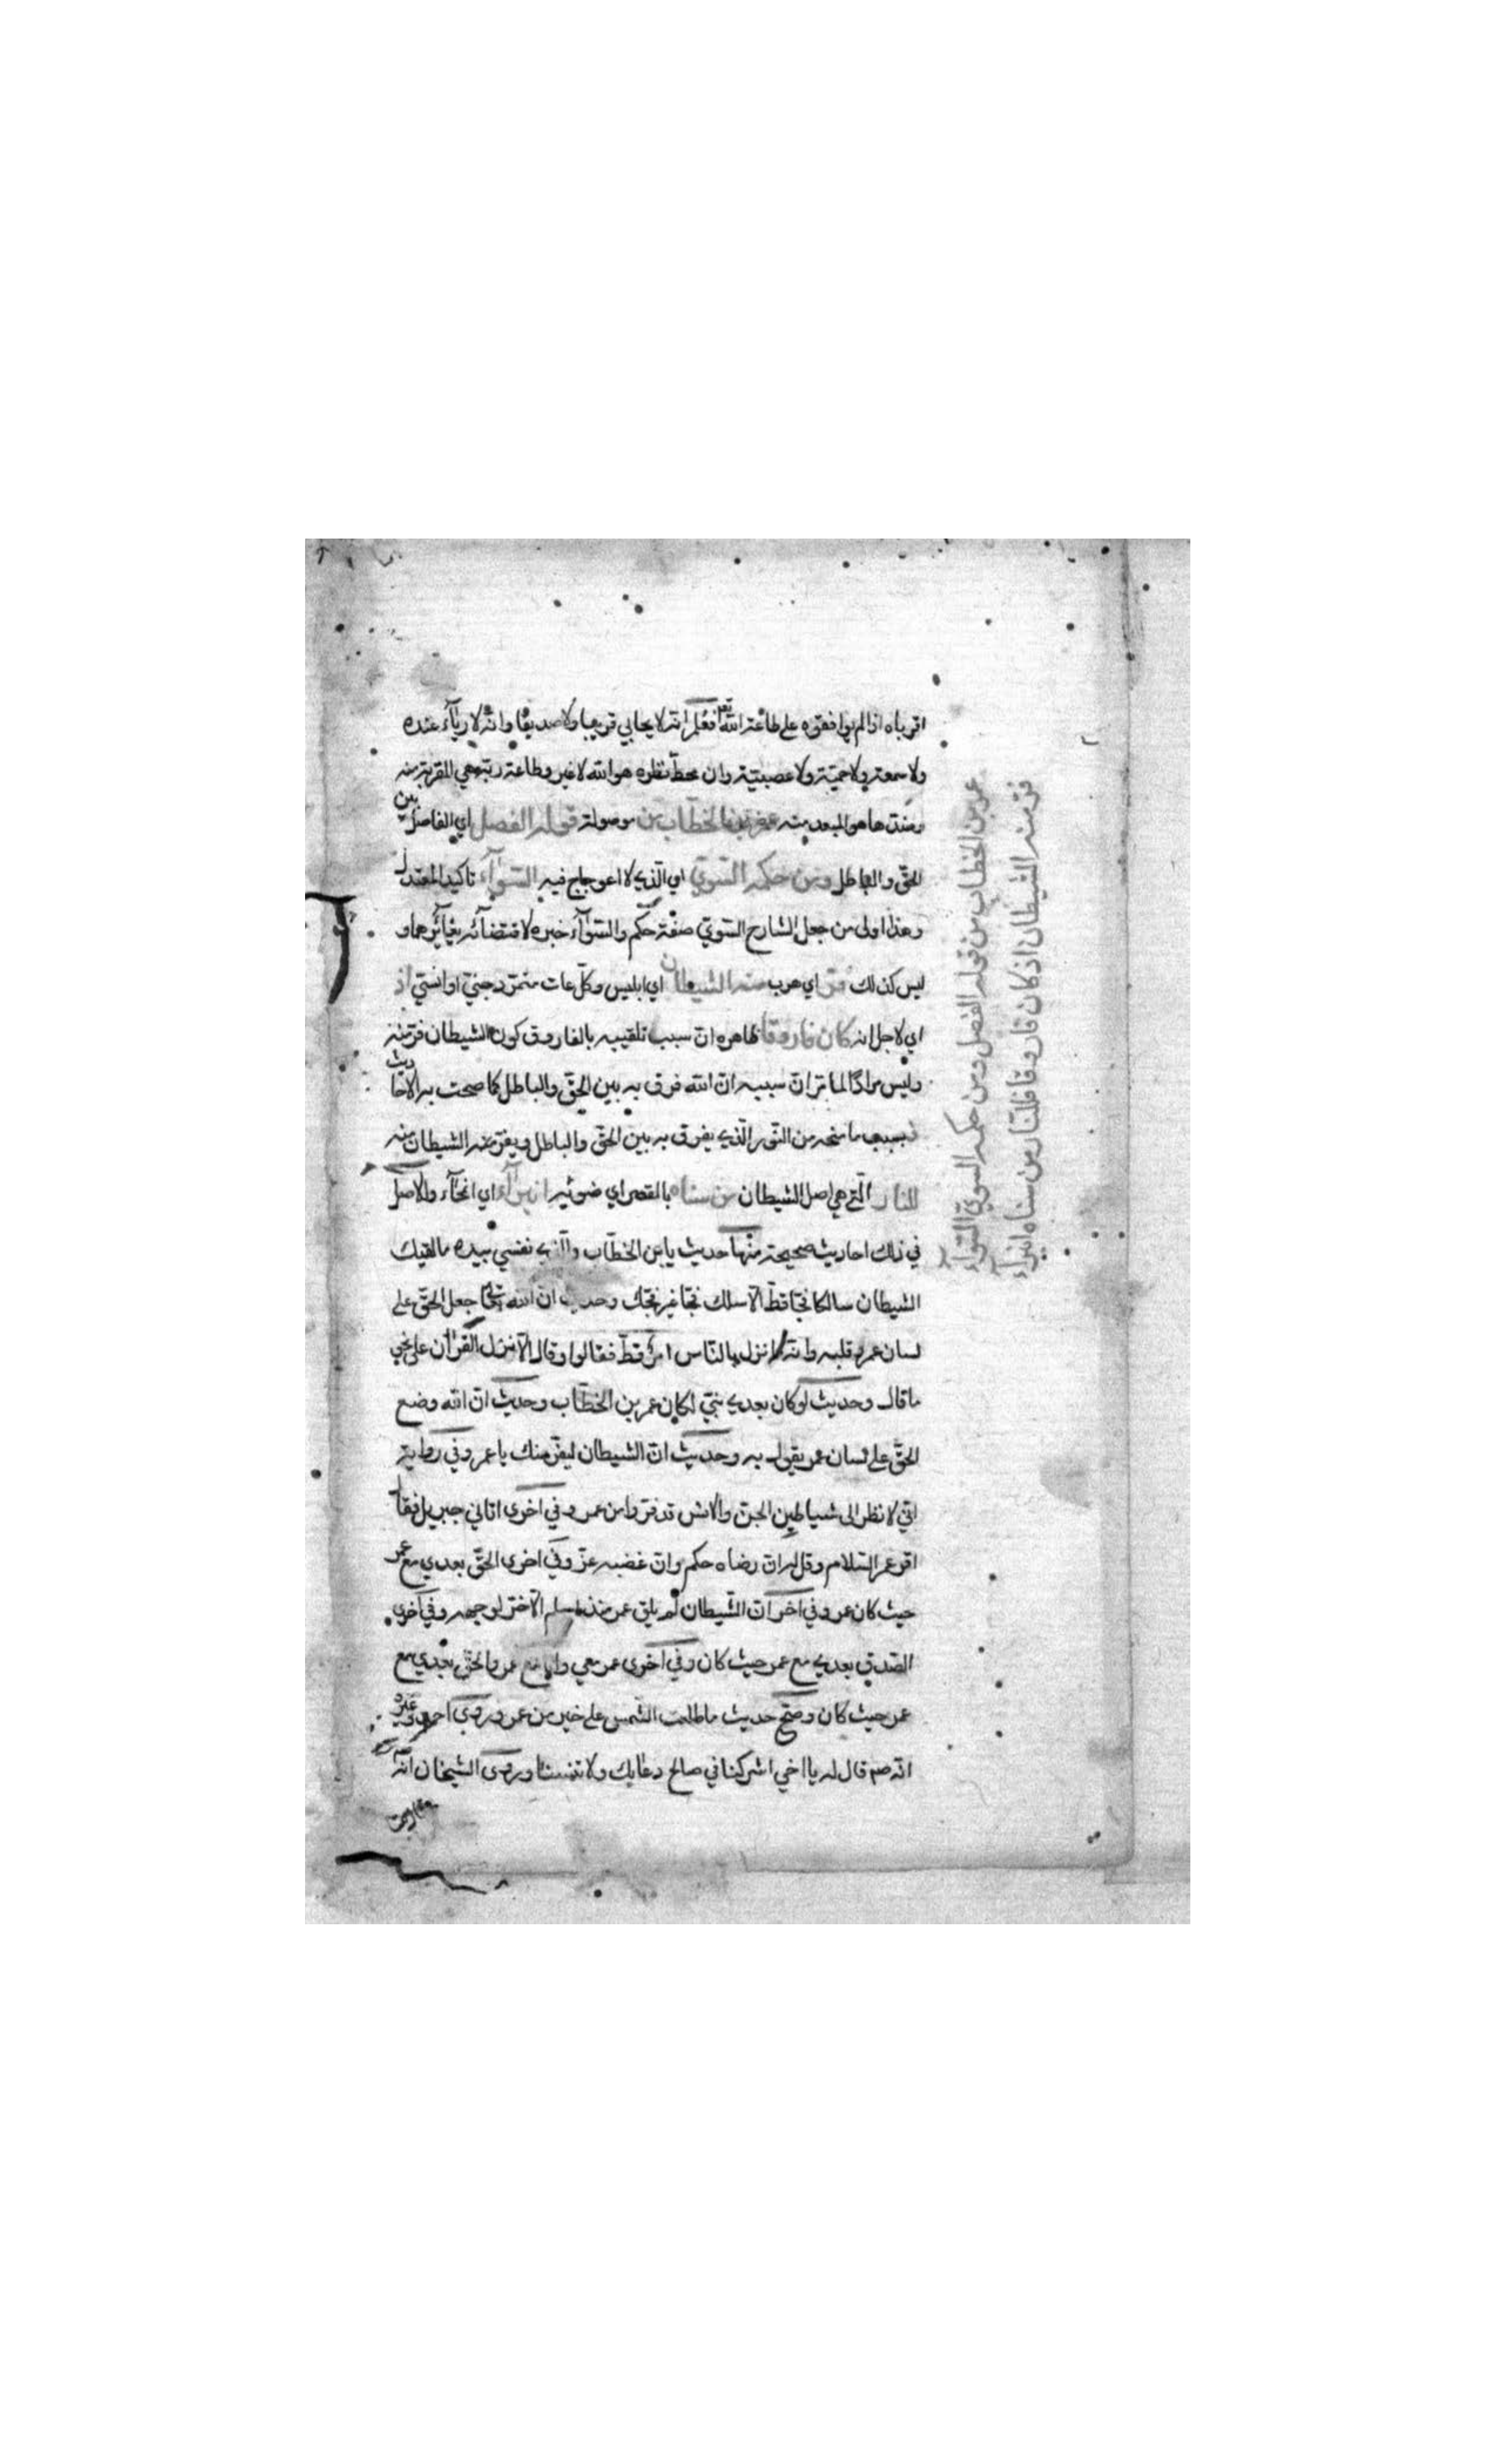 اقرباه اذا لم يوافقوه على طاعة الله تعم فعلم انه لا يحابي قريبا ولا صديقا وانه لا رياء عنده
ولا سمعة ولا حمية ولا عصبية وان محط نظره هو الله لا غير وطاعة ربه هي المقربة منه
وضدها هو المبعد منه عمر بن الخطاب من موصولة قوله الفصل اي الفاصل بين
الحق والباطل ومن حكمه السوي اي الذي لا اعوجاج فيه السواء تاكيد المعتدل
وهذا اولى من جعل الشارح السوي صفة حكم والسواء خبره لاقتضائه تغايرهما و
ليس كذلك فر اي هرب منه الشيطان اي ابليس وكل عات متمرد جني او انسي اذ
اي لاجل انه كان فاروقا ظاهره ان سبب تلقيبه بالفاروق كون الشيطان فر منه
وليس مرادا لما مر ان سببه ان الله فرق به بين الحق والباطل كما صحت به الاحاديث
فبسبب ما منحه من النور الذي يفرق به بين الحق والباطل ويفر منه الشيطان منه
للنار التي هي اصل الشيطان من سناه بالقصر اي ضوئه انبراء اي انمحاء والاصل
في ذلك احاديث صحيحة منها حديث يا ابن الخطاب والذي نفسي بيده ما لقيك
الشيطان سالكا فجا قط الا سلك فجا غير فجك وحديث ان الله جعل الحق على
لسان عمر وقلبه وانه ما نزل بالناس امر قط فقالوا وقال الا نزل القران على نحو
ما قال وحديث لو كان بعدي نبي لكان عمر بن الخطاب وحديث ان الله وضع
الحق على لسان عمر يقول به وحديث ان الشيطان ليفر منك يا عمر وفي رواية
اني لا نظر الى شياطين الجن والانس قد فروا من عمر وفي اخرى اتاني جبريل فقال
اقرء عمر السلام وقل له ان رضاه حكم وان غضبه عز وفي اخرى الحق بعدي مع عمر
حيث كان عمر وفي اخر ان الشيطان لم يلق عمر منذ اسلم الا خر لوجهه وفي اخرى
الصدق بعدي مع عمر حيث كان وفي اخرى عمر معي وانا مع عمر والحق بعدي مع
عمر حيث كان وصح حديث ما طلعت الشمس على خير من عمر وروى احمد وغيره
انه صم قال له يا اخي اشركنا في صالح دعايك ولا تنسنا وروى الشيخان انه
عمر بن الخطاب من قوله الفصل ومن حكمه السوي السواء
فر منه الشيطان اذ كان فاروقا فللنار من سناه انبراء